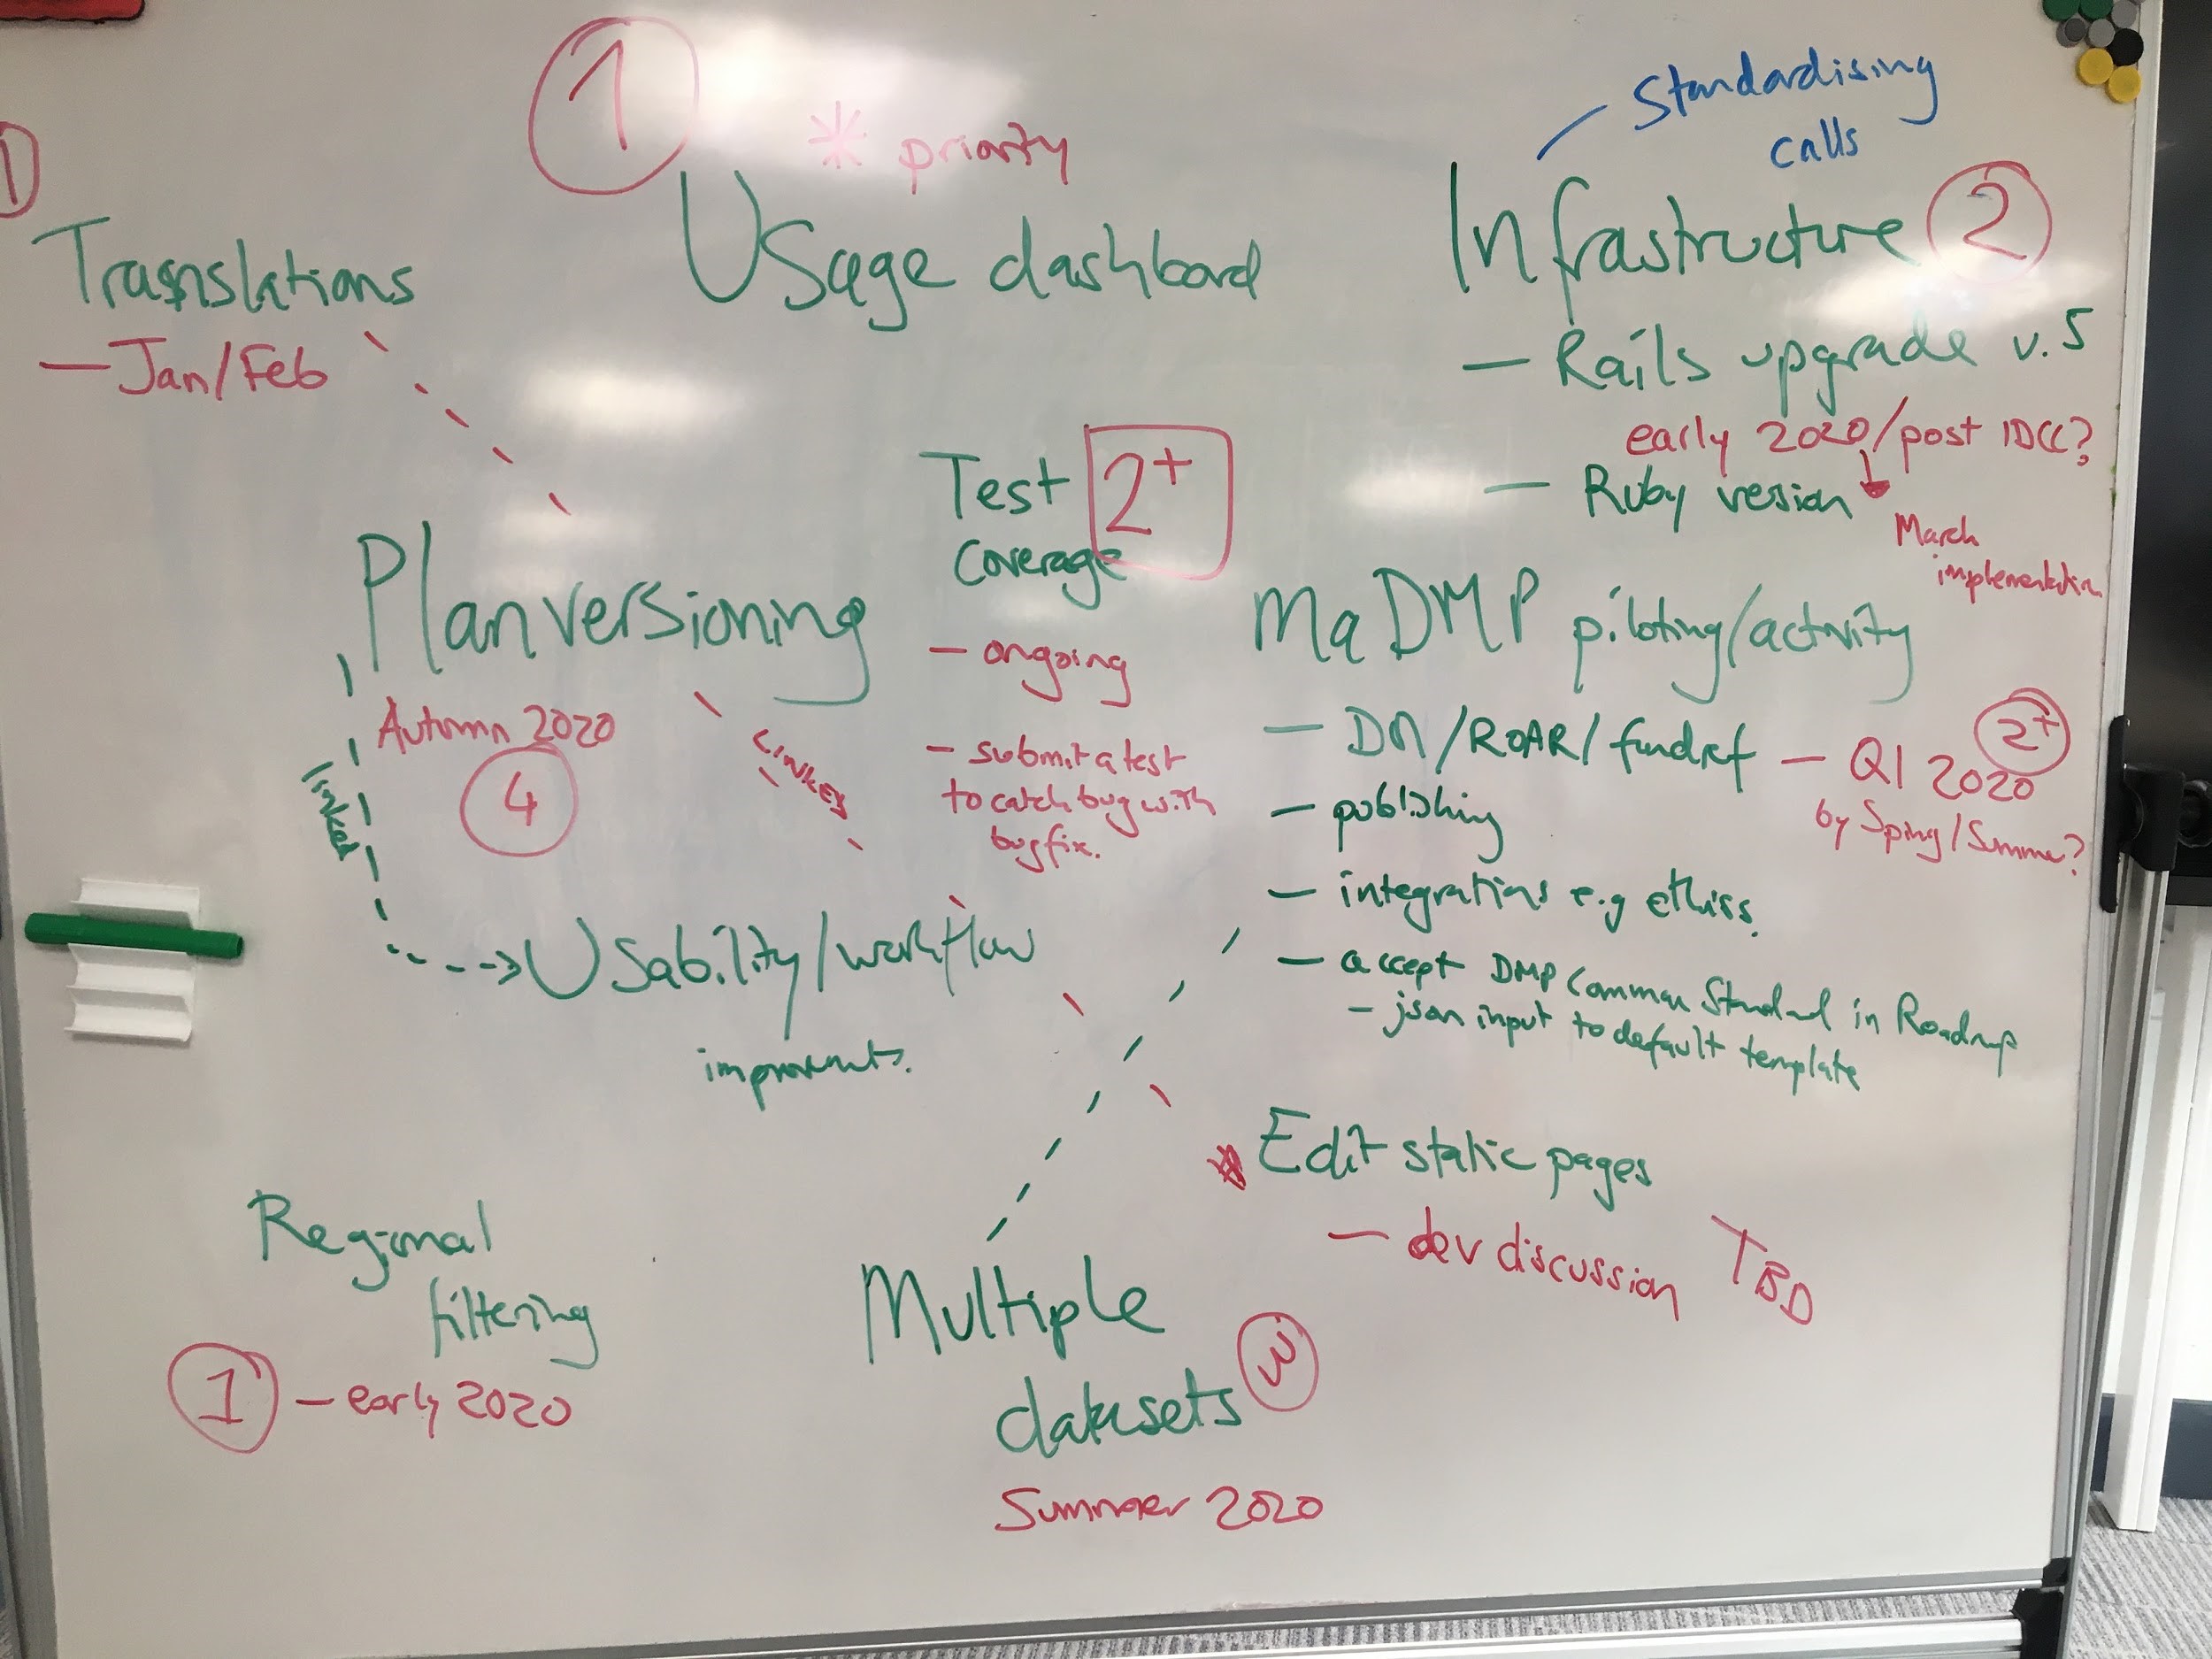 1
* priority
Usage dashboard
1
Translations
— Jan/Feb
Standardising
calls
Infrastructure 2
— Rails upgrade v.5
early 2020/post IDCC?
— Ruby version
March
implementation
Test 2+
Coverage
— ongoing
— submit a test
to catch bug with
bugfix.
Plan versioning
Autumn 2020
4
linked
LINKED
Usability/workflow
improvements.
MaDMP piloting/activity
— DM/ROAR/fundref — Q1 2020 2+
by Spring/Summer?
— publishing
— integrations e.g ethics.
— accept DMP Common Standard in Roadmap
— json input to default template
Edit static pages
— dev discussion TBD
Regional
filtering
1 — early 2020
Multiple
datasets 3
Summer 2020